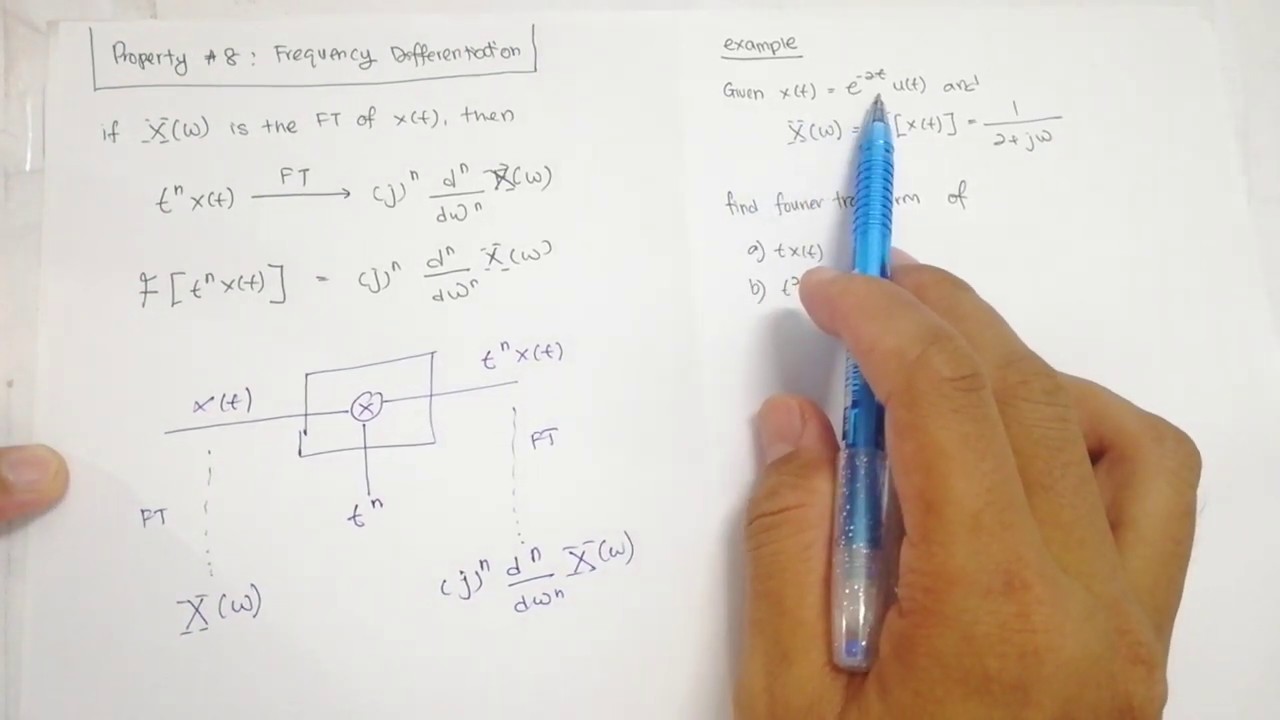 Property #8: Frequency Differentiation
if X(ω) is the FT of x(t), then
t^n x(t) —FT→ (j)^n d^n/dω^n X(ω)
F[t^n x(t)] = (j)^n d^n/dω^n X(ω)
x(t)
t^n x(t)
FT
FT
t^n
X(ω)
(j)^n d^n/dω^n X(ω)
example
Given x(t) = e^-2t u(t) and
X(ω) = [x(t)] = 1/(2+jω)
find fourier of
a) t x(t)
b)